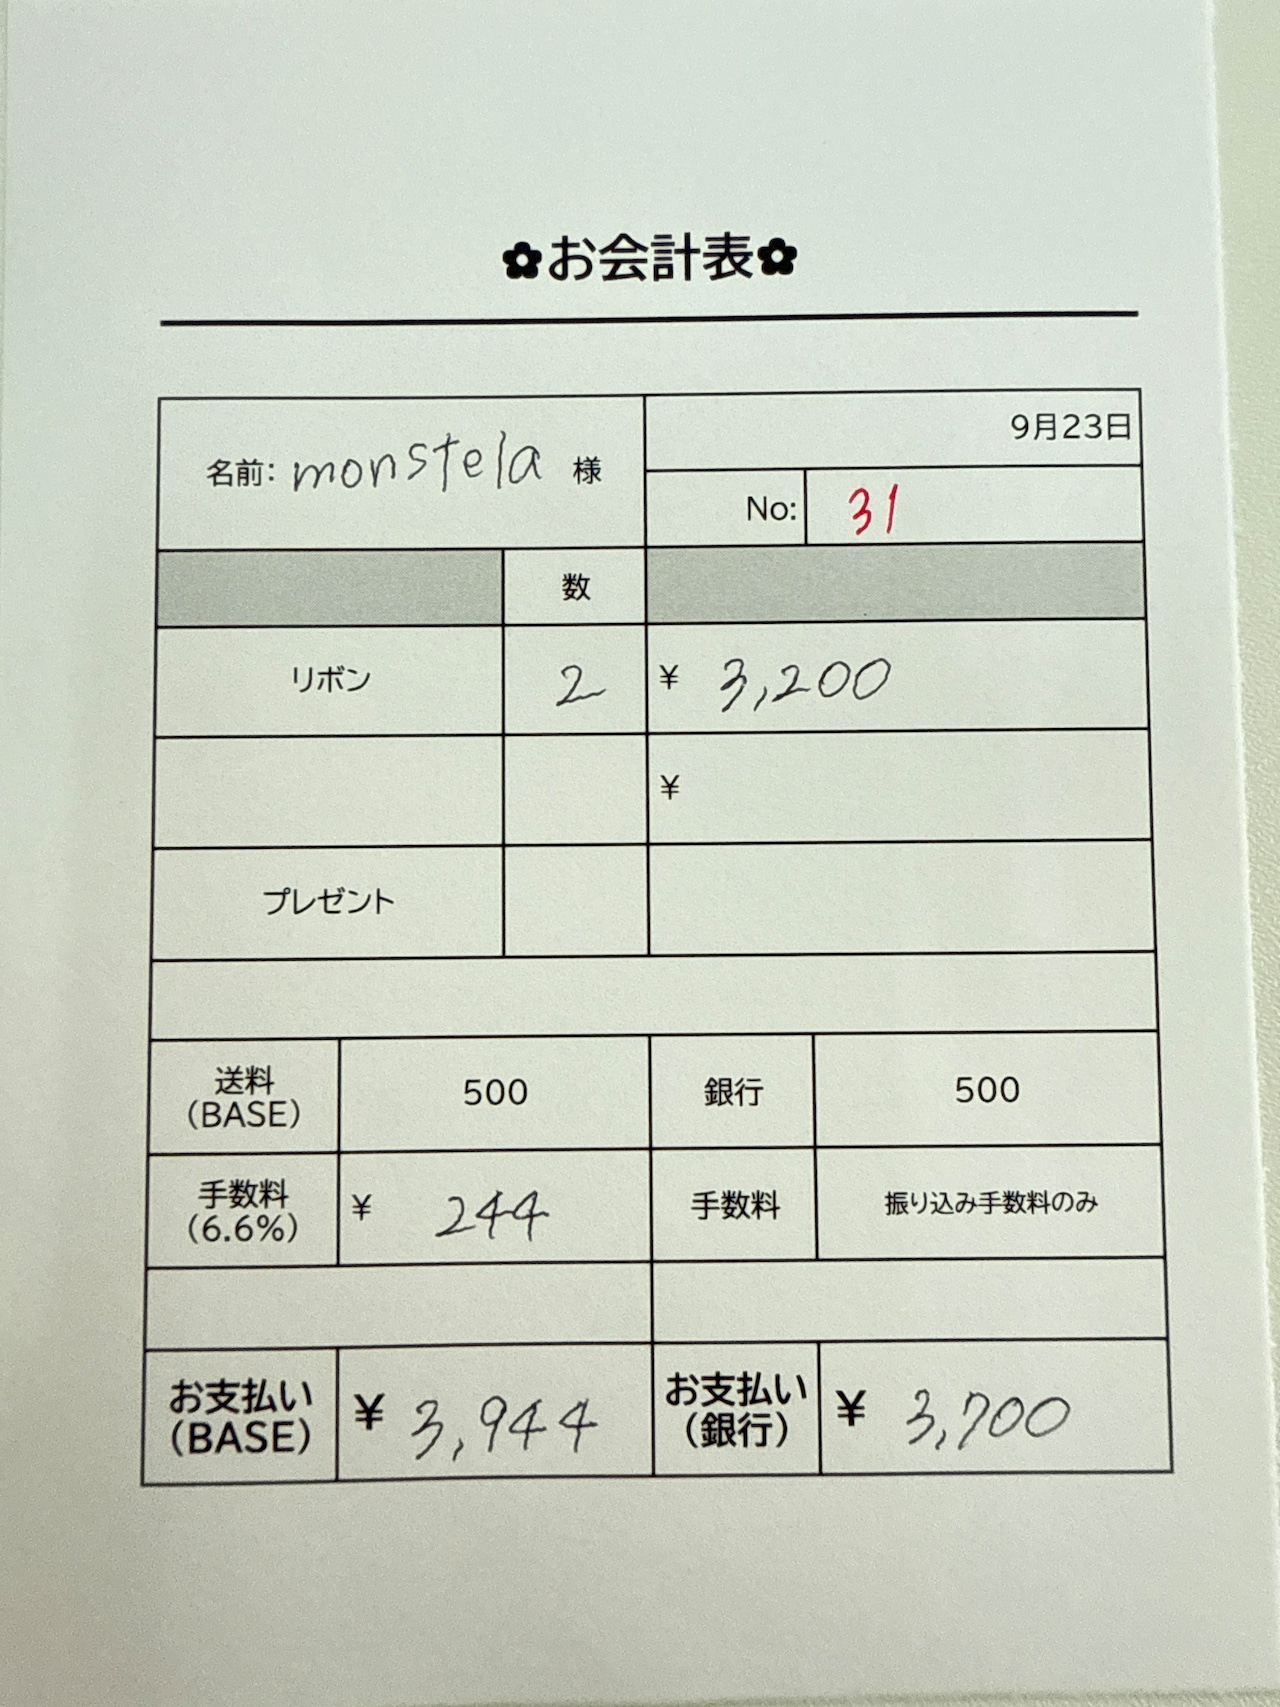 ✿お会計表✿
名前: monstela 様
9月23日
No: 31
数
リボン 2 ¥ 3,200
¥
プレゼント
送料
(BASE)
500
銀行
500
手数料
(6.6%)
¥ 244
手数料
振り込み手数料のみ
お支払い
(BASE)
¥ 3,944
お支払い
(銀行)
¥ 3,700